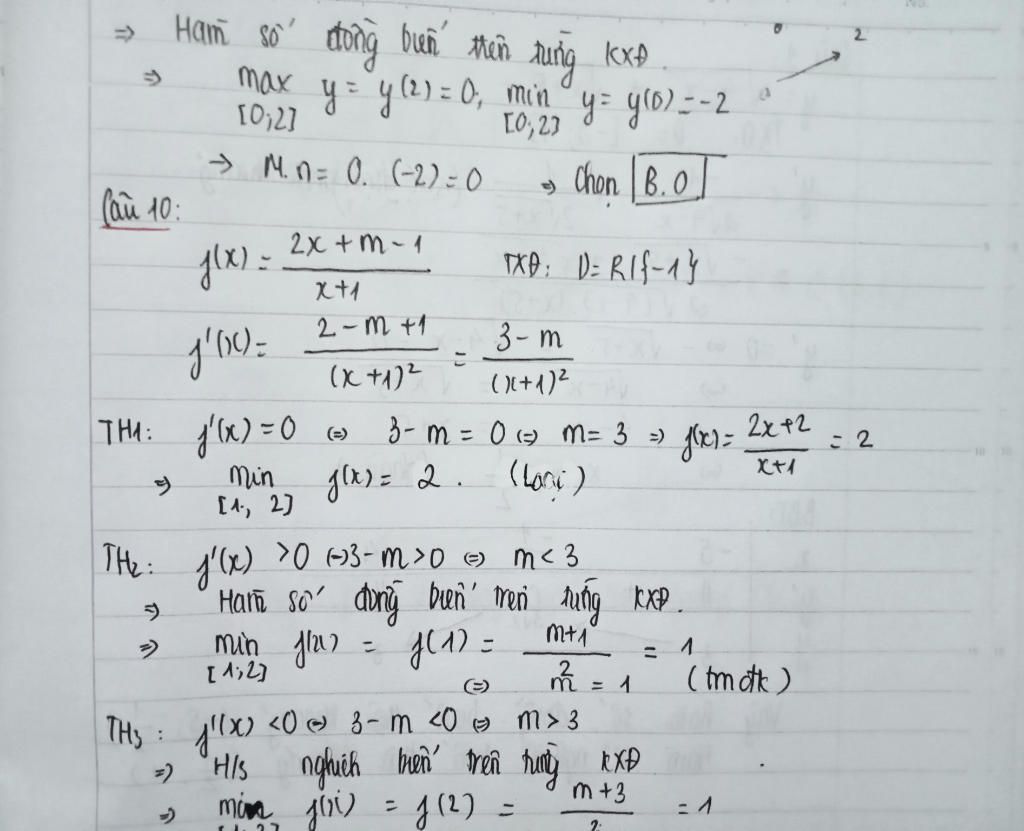 ⇒ Hàm số đồng biến trên từng KXĐ.
⇒ max y = y(2) = 0; min y = y(0) = -2
[0;2] [0;2]
0 2
→ M.n = 0.(-2) = 0 ⇒ Chọn B. 0
Câu 10:
f(x) = (2x + m - 1)/(x+1) TXĐ: D = R\{-1}
f'(x) = (2 - m + 1)/(x+1)² = (3 - m)/(x+1)²
TH1: f'(x) = 0 ⇔ 3 - m = 0 ⇔ m = 3 ⇒ f(x) = (2x+2)/(x+1) = 2
⇒ min f(x) = 2. (Loại)
[1; 2]
TH2: f'(x) > 0 ⇔ 3 - m > 0 ⇔ m < 3
⇒ Hàm số đồng biến trên từng KXĐ.
⇒ min f(x) = f(1) = (m+1)/2 = 1
[1;2] ⇔ m = 1 (tmđk)
TH3: f'(x) < 0 ⇔ 3 - m < 0 ⇔ m > 3
⇒ H/s nghịch biến trên từng KXĐ
⇒ min f(x) = f(2) = (m+3)/3 = 1